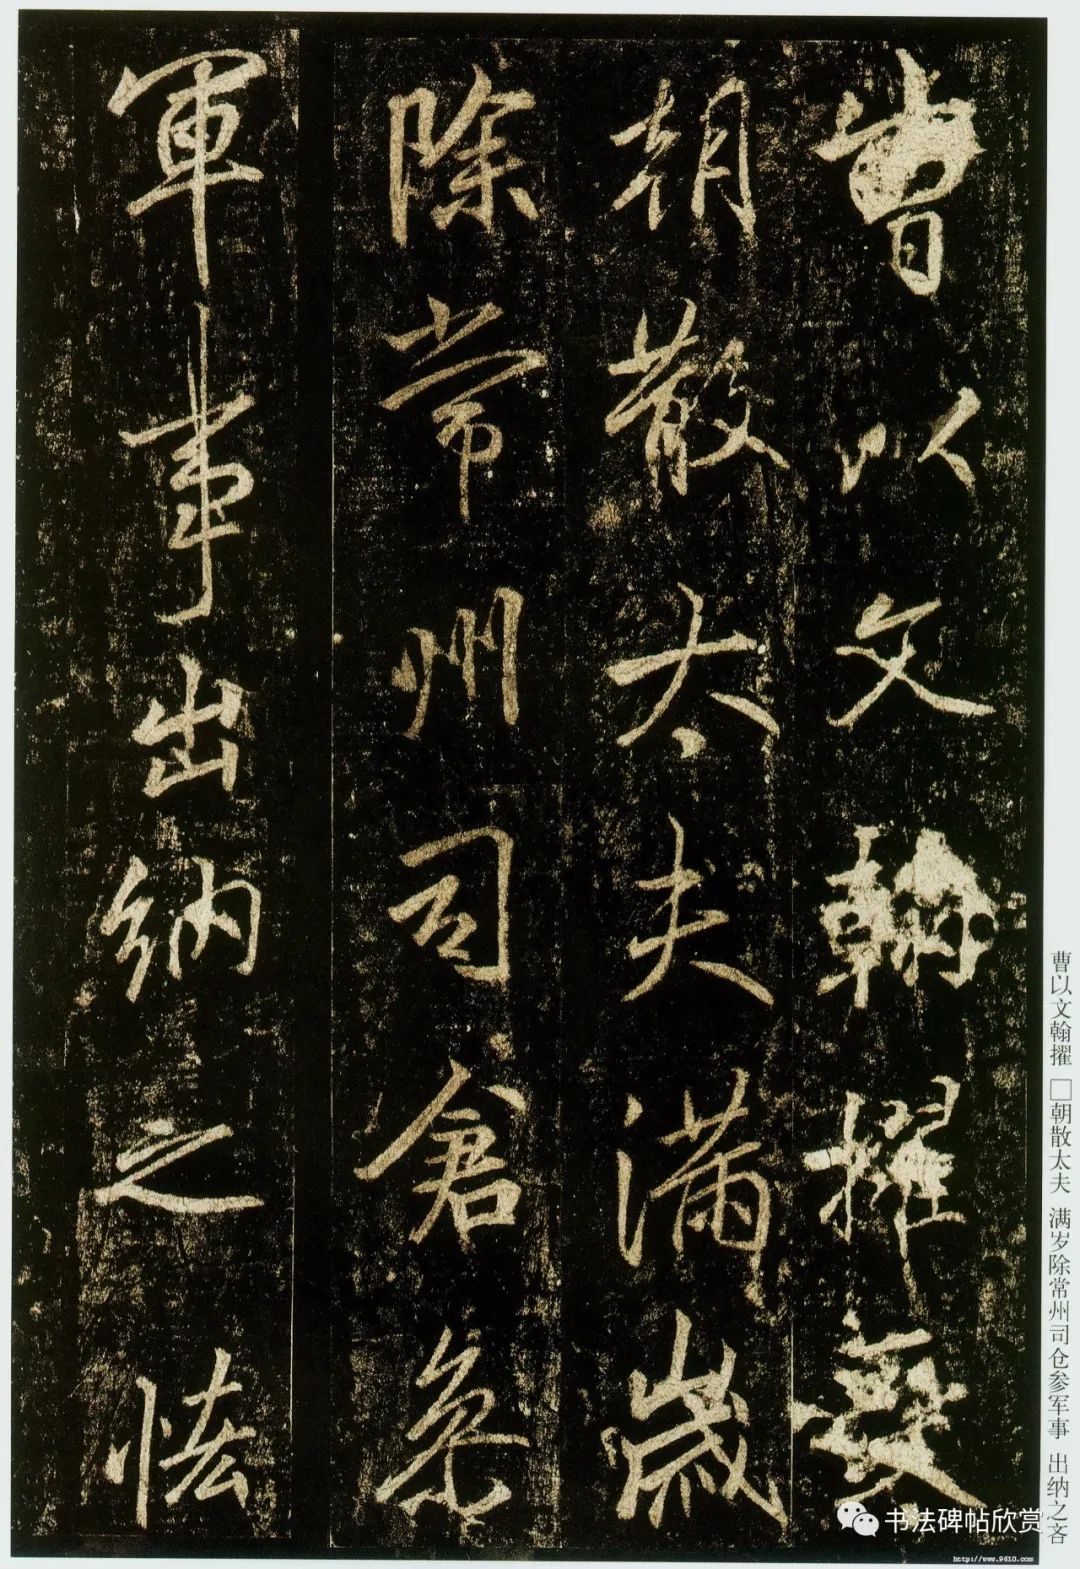 曹以文翰擢
朝散太夫满歲
除常州司倉參
軍事出納之恡
曹以文翰擢□朝散太夫 满岁除常州司仓参军事 出纳之吝
书法碑帖欣赏
http://www.9610.com